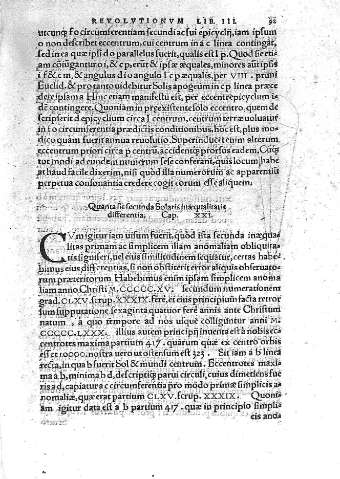 REVOLVTIONVM LIB. III. 92
utcunque f o circumferentiam secundi ac sui epicyclij, iam ipsum
o non describet eccentrum, cui centrum in a c linea contingat,
sed in ea quæ ipsi d o parallelus fuerit, qualis est l p. Quod si eti
am coniungantur o i, & c p, erunt & ipsæ æquales, minores autem ipsis
i f & c m, & angulus d i o angulo l c p æqualis, per VIII. primi
Euclid. & pro tanto uidebitur Solis apogeum in c p linea præce
dere ipsam a Hinc etiam manifestum est, per eccentrepicyclum i
dem contingere. Quoniam in præexistente solo eccentro, quem de
scripserit d epicyclium circa l centrum, centrum terræ uoluatur
in f o circumferentia prædictis conditionibus, hoc est, plus mo
dico quam fuerit annua reuolutio. Superinducet enim alterum
eccentrum priori circa p centrum, accidentque prorsus eadem. Cumque
tot modi ad eundem numerum sese conferant, quis locum habe
at haud facile dixerim, nisi quod illa numerorum ac apparentium
perpetua consonantia credere cogit eorum esse aliquem.
Quanta sit secunda Solaris inæqualitatis
differentia. Cap. XXI.
CVm igitur iam uisum fuerit, quod ista secunda inæqua
litas primam ac simplicem illam anomaliam obliquita
tis signiferi, uel eius similitudinem sequatur, certas habe
bimus eius differentias, si non obstiterit error aliquis obseruato
rum præteritorum. Habebimus enim ipsam simplicem anoma
liam anno Christi M. CCCCC. XV. secundum numerationem
grad. CLXV. scrup. XXXIX. fere, et eius principium facta retror
sum supputatione sexaginta quatuor fere annis ante Christum
natum, a quo tempore ad nos usque colliguntur anni M.
CCCCC. LXXX. illius autem principij inuenta est a nobis ec
centrotes maxima partium 417. quarum quæ ex centro orbis
esset 10000. nostra uero ut ostensum est 323. Sit iam a b linea
recta, in qua b fuerit Sol & mundi centrum. Eccentrotes maxi
ma a b, minima b d, descriptique parui circuli, cuius dimetiens fue
rit a d, capiatur a c circumferentia pro modo primæ simplicis a
nomaliæ, quæ erat partium CLXV. scrup. XXXIX. Quoni
am igitur data est a b partium 417. quæ in principio simplis
cis ano